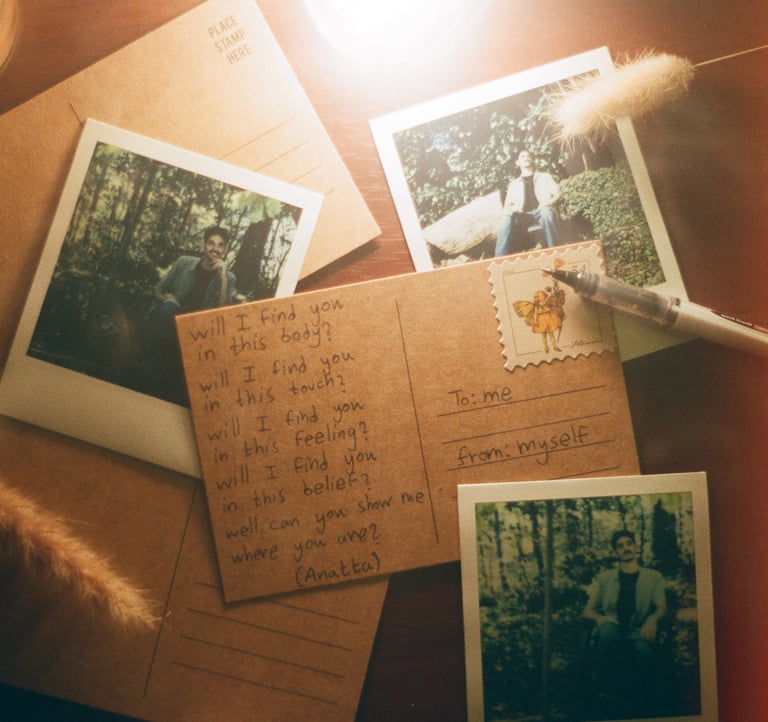 PLACE
STAMP
HERE
will I find you
in this body?
will I find you
in this touch?
will I find you
in this feeling?
will I find you
in this belief?
well, can you show me
where you are?
(Anatta)
To: me
from: myself